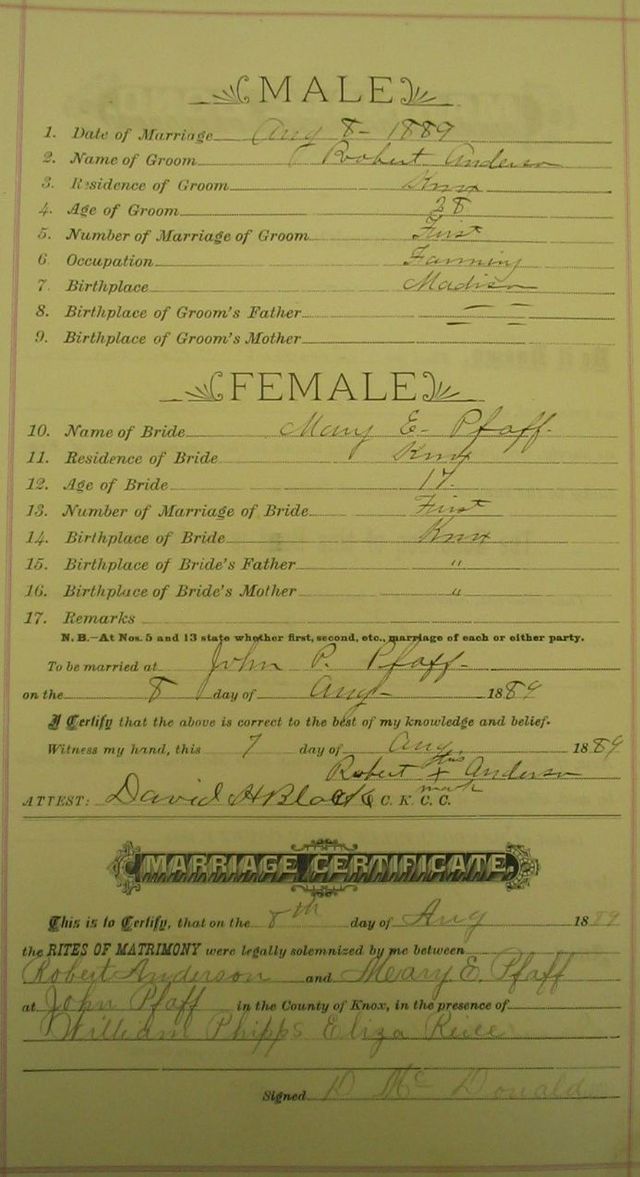 MALE
1. Date of Marriage Aug 8 - 1889
2. Name of Groom Robert Anderson
3. Residence of Groom Knox
4. Age of Groom 28
5. Number of Marriage of Groom First
6. Occupation Farming
7. Birthplace Madison
8. Birthplace of Groom's Father — —
9. Birthplace of Groom's Mother — —
FEMALE
10. Name of Bride Mary E. Pfaff.
11. Residence of Bride Knox
12. Age of Bride 17.
13. Number of Marriage of Bride First
14. Birthplace of Bride Knox
15. Birthplace of Bride's Father "
16. Birthplace of Bride's Mother "
17. Remarks
N. B.—At Nos. 5 and 13 state whether first, second, etc., marriage of each or either party.
To be married at John P. Pfaff-
on the 8 day of Aug- 1889
I Certify that the above is correct to the best of my knowledge and belief.
Witness my hand, this 7 day of Aug. 1889
Robert his X mark Anderson
ATTEST: David H Black C. K. C. C.
MARRIAGE CERTIFICATE.
This is to Certify, that on the 8th day of Aug 1889
the RITES OF MATRIMONY were legally solemnized by me between
Robert Anderson and Meary E. Pfaff
at John Pfaff in the County of Knox, in the presence of
William Phipps Eliza
Signed D McDonald